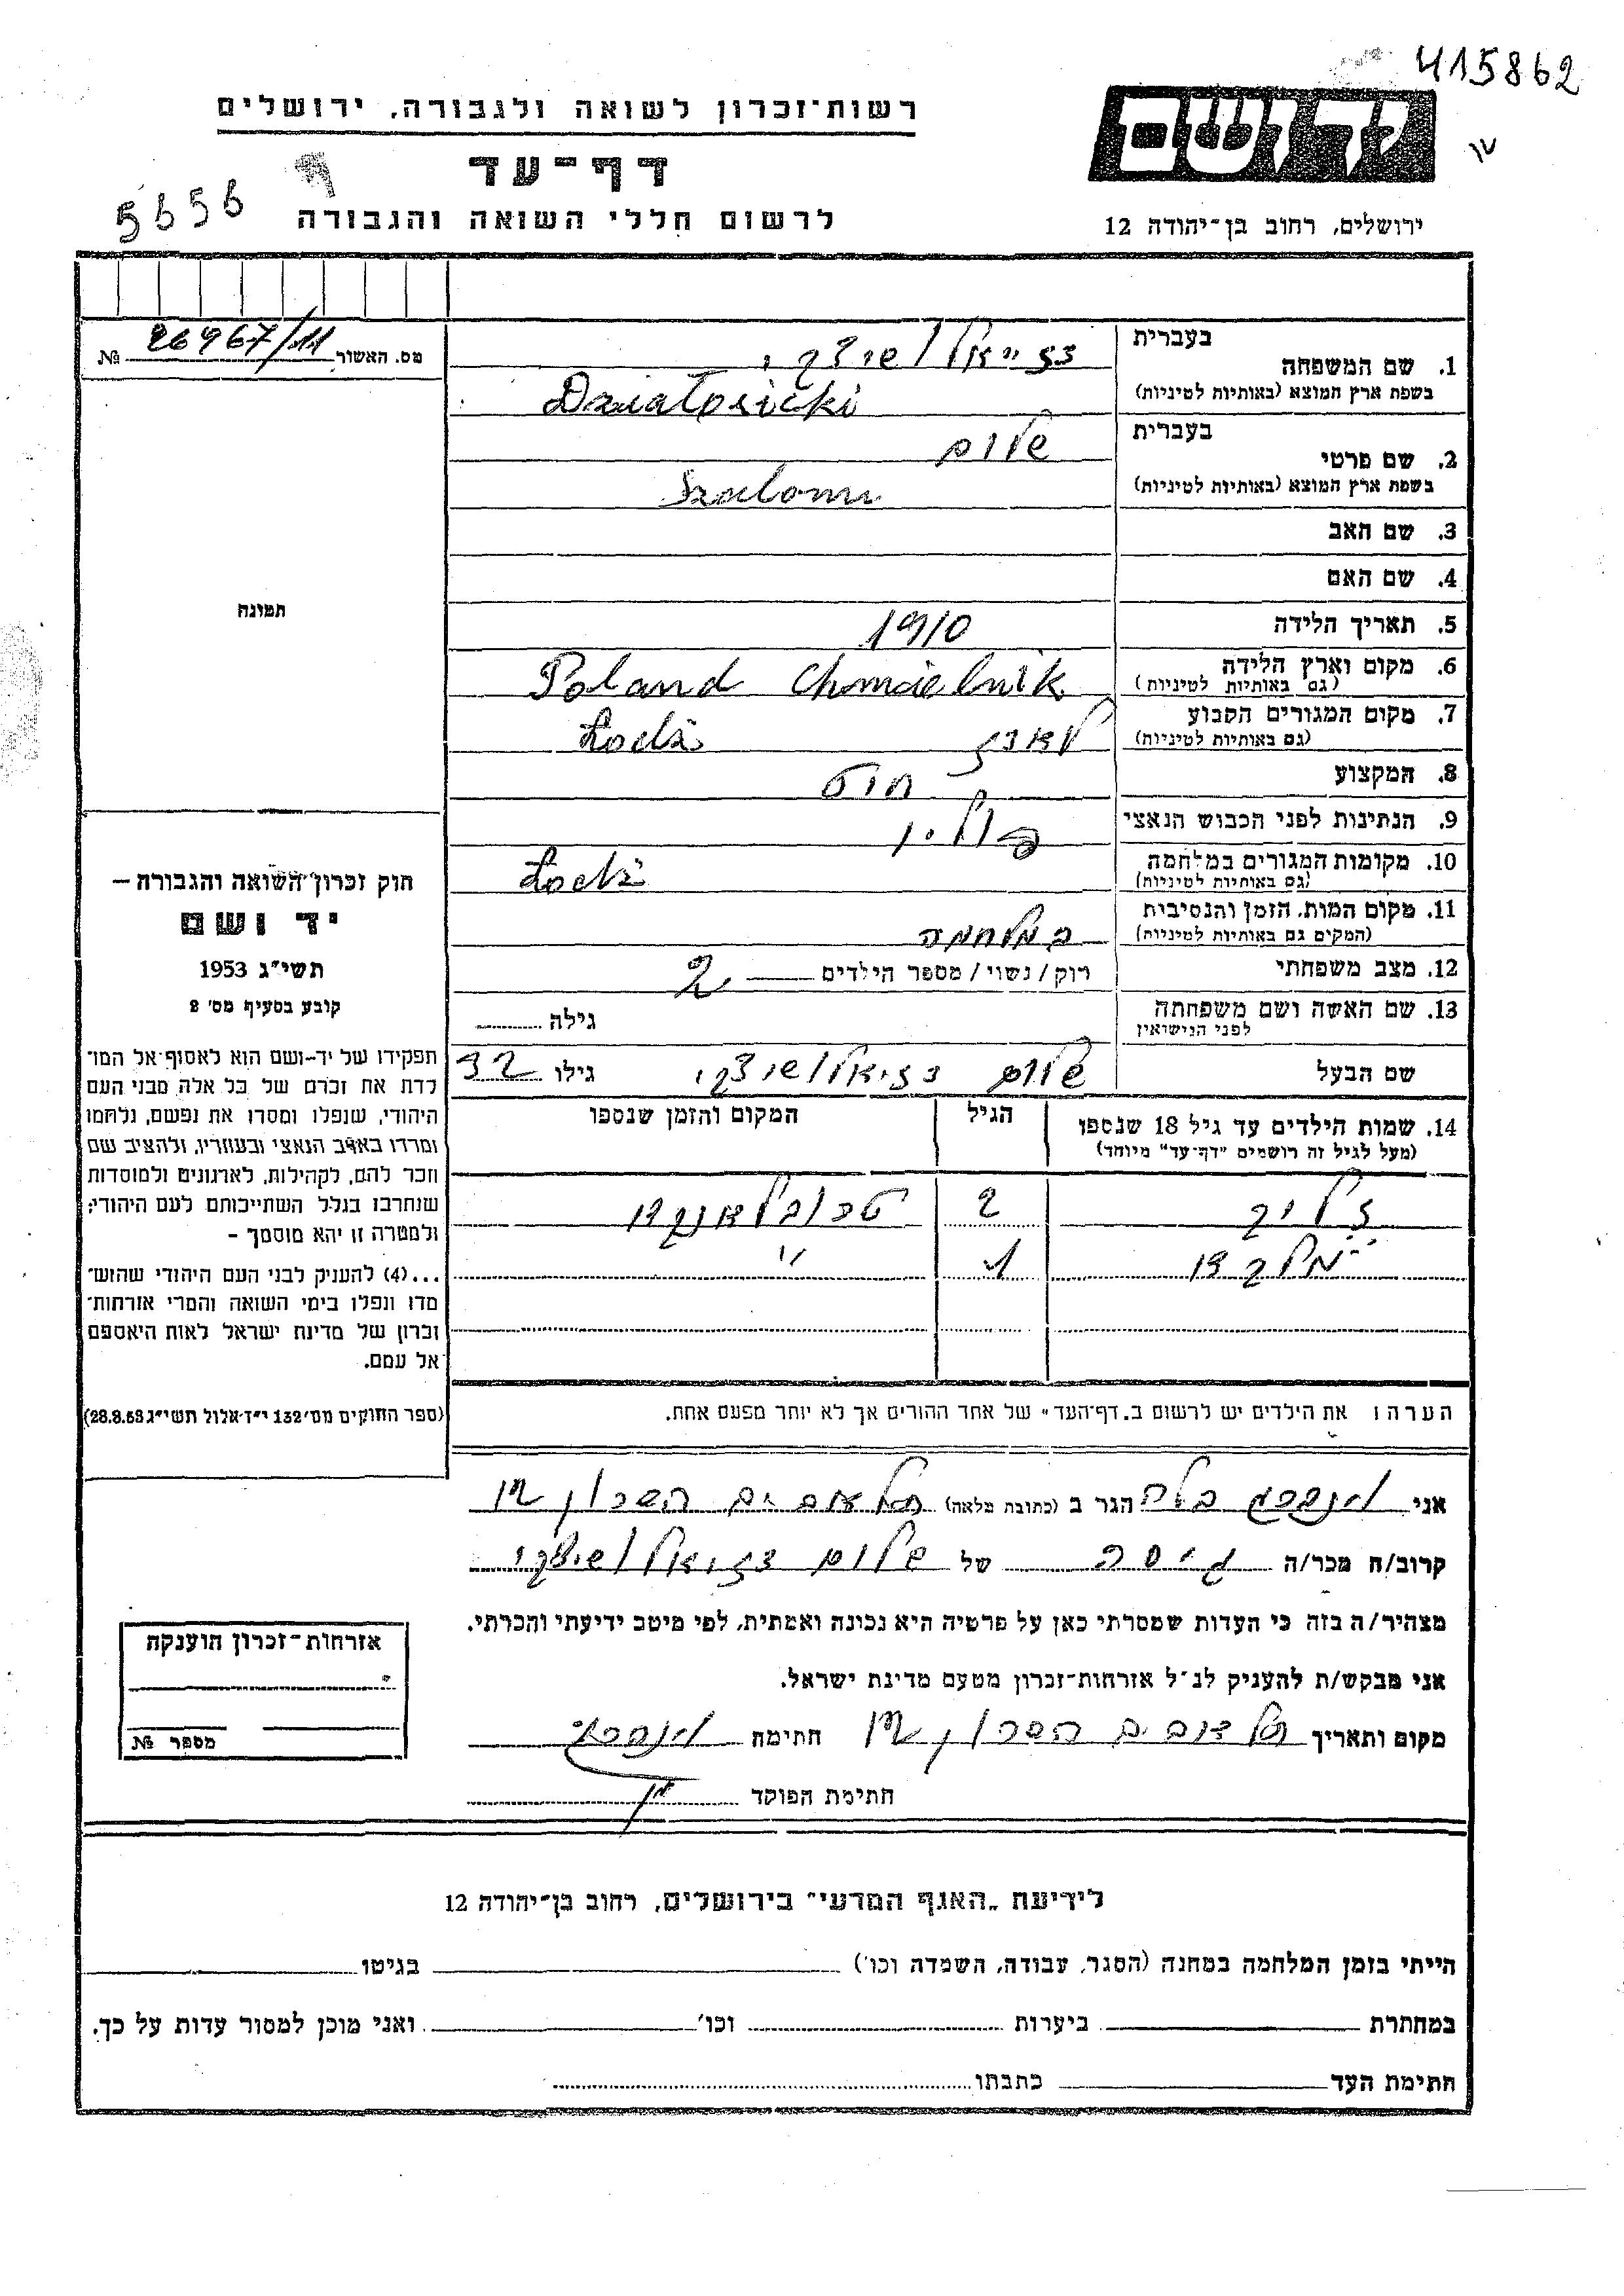 415862
ידושם
רשות־זכרון לשואה ולגבורה, ירושלים
דף־עד
5656
לרשום חללי השואה והגבורה
ירושלים, רחוב בן־יהודה 12
מס. האשור 26967/11 №
בעברית
1. שם המשפחה
בשפת ארץ המוצא (באותיות לטיניות) Działosicki
בעברית
2. שם פרטי שלום
בשפת ארץ המוצא (באותיות לטיניות) Szalom
3. שם האב
4. שם האם
תמונה
5. תאריך הלידה 1910
6. מקום וארץ הלידה Poland Chmielnik
(גם באותיות לטיניות)
7. מקום המגורים הקבוע לאודז Łodż
(גם באותיות לטיניות)
8. המקצוע
9. הנתינות לפני הכבוש הנאצי פולין
10. מקומות המגורים במלחמה Łodż
(גם באותיות לטיניות)
11. מקום המות, הזמן והנסיבות במלחמה
(המקום גם באותיות לטיניות)
12. מצב משפחתי רוק/נשוי/מספר הילדים 2
13. שם האשה ושם משפחתה גילה
לפני הנישואין
שם הבעל שלום דזיאלושיצקי גילו 32
14. שמות הילדים עד גיל 18 שנספו הגיל המקום והזמן שנספו
(מעל לגיל זה רושמים "דף־עד" מיוחד)
2
1 "
הערה: את הילדים יש לרשום ב"דף־העד" של אחד ההורים אך לא יותר מפעם אחת.
חוק זכרון השואה והגבורה —
יד ושם
תשי"ג 1953
קובע בסעיף מס' 2
תפקידו של יד־ושם הוא לאסוף אל המו־
לדת את זכרם של כל אלה מבני העם
היהודי, שנפלו ומסרו את נפשם, נלחמו
ומרדו באויב הנאצי ובעוזריו, ולהציב שם
וזכר להם, לקהילות, לארגונים ולמוסדות
שנחרבו בגלל השתייכותם לעם היהודי;
ולמטרה זו יהא מוסמך -
...(4) להעניק לבני העם היהודי שהוש־
מדו ונפלו בימי השואה והמרי אזרחות־
זכרון של מדינת ישראל לאות היאספם
אל עמם.
(ספר החוקים מס' 132 י"ז אלול תשי"ג 28.8.53)
אני הגר ב (כתובת מלאה)
קרוב/ה מכר/ה גיסה של שלום דזיאלושיצקי
מצהיר/ה בזה כי העדות שמסרתי כאן על פרטיה היא נכונה ואמתית, לפי מיטב ידיעתי והכרתי.
אני מבקש/ת להעניק לנ"ל אזרחות־זכרון מטעם מדינת ישראל.
מקום ותאריך חתימה
חתימת הפוקד
אזרחות־זכרון הוענקה
מספר №
לידיעת "האגף המדעי" בירושלים, רחוב בן־יהודה 12
הייתי בזמן המלחמה במחנה (הסגר, עבודה, השמדה וכו') בגיטו
במחתרת ביערות וכו' ואני מוכן למסור עדות על כך.
חתימת העד כתבתו